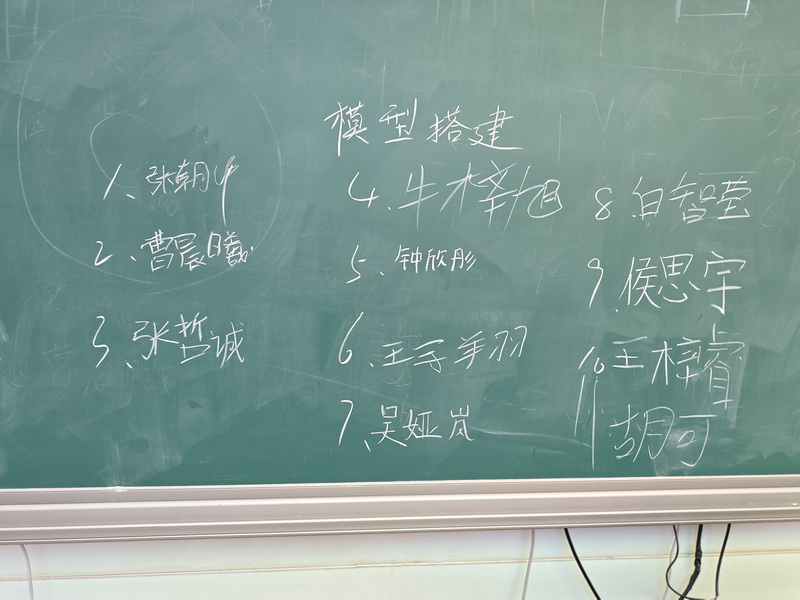 模型搭建
1、张朝
2、曹晨曦
3、张哲诚
4、牛梓旭
5、钟欣彤
6、王羽
7、吴娅岚
8 白智莹
9、侯思宇
10 王梓睿
11 胡可